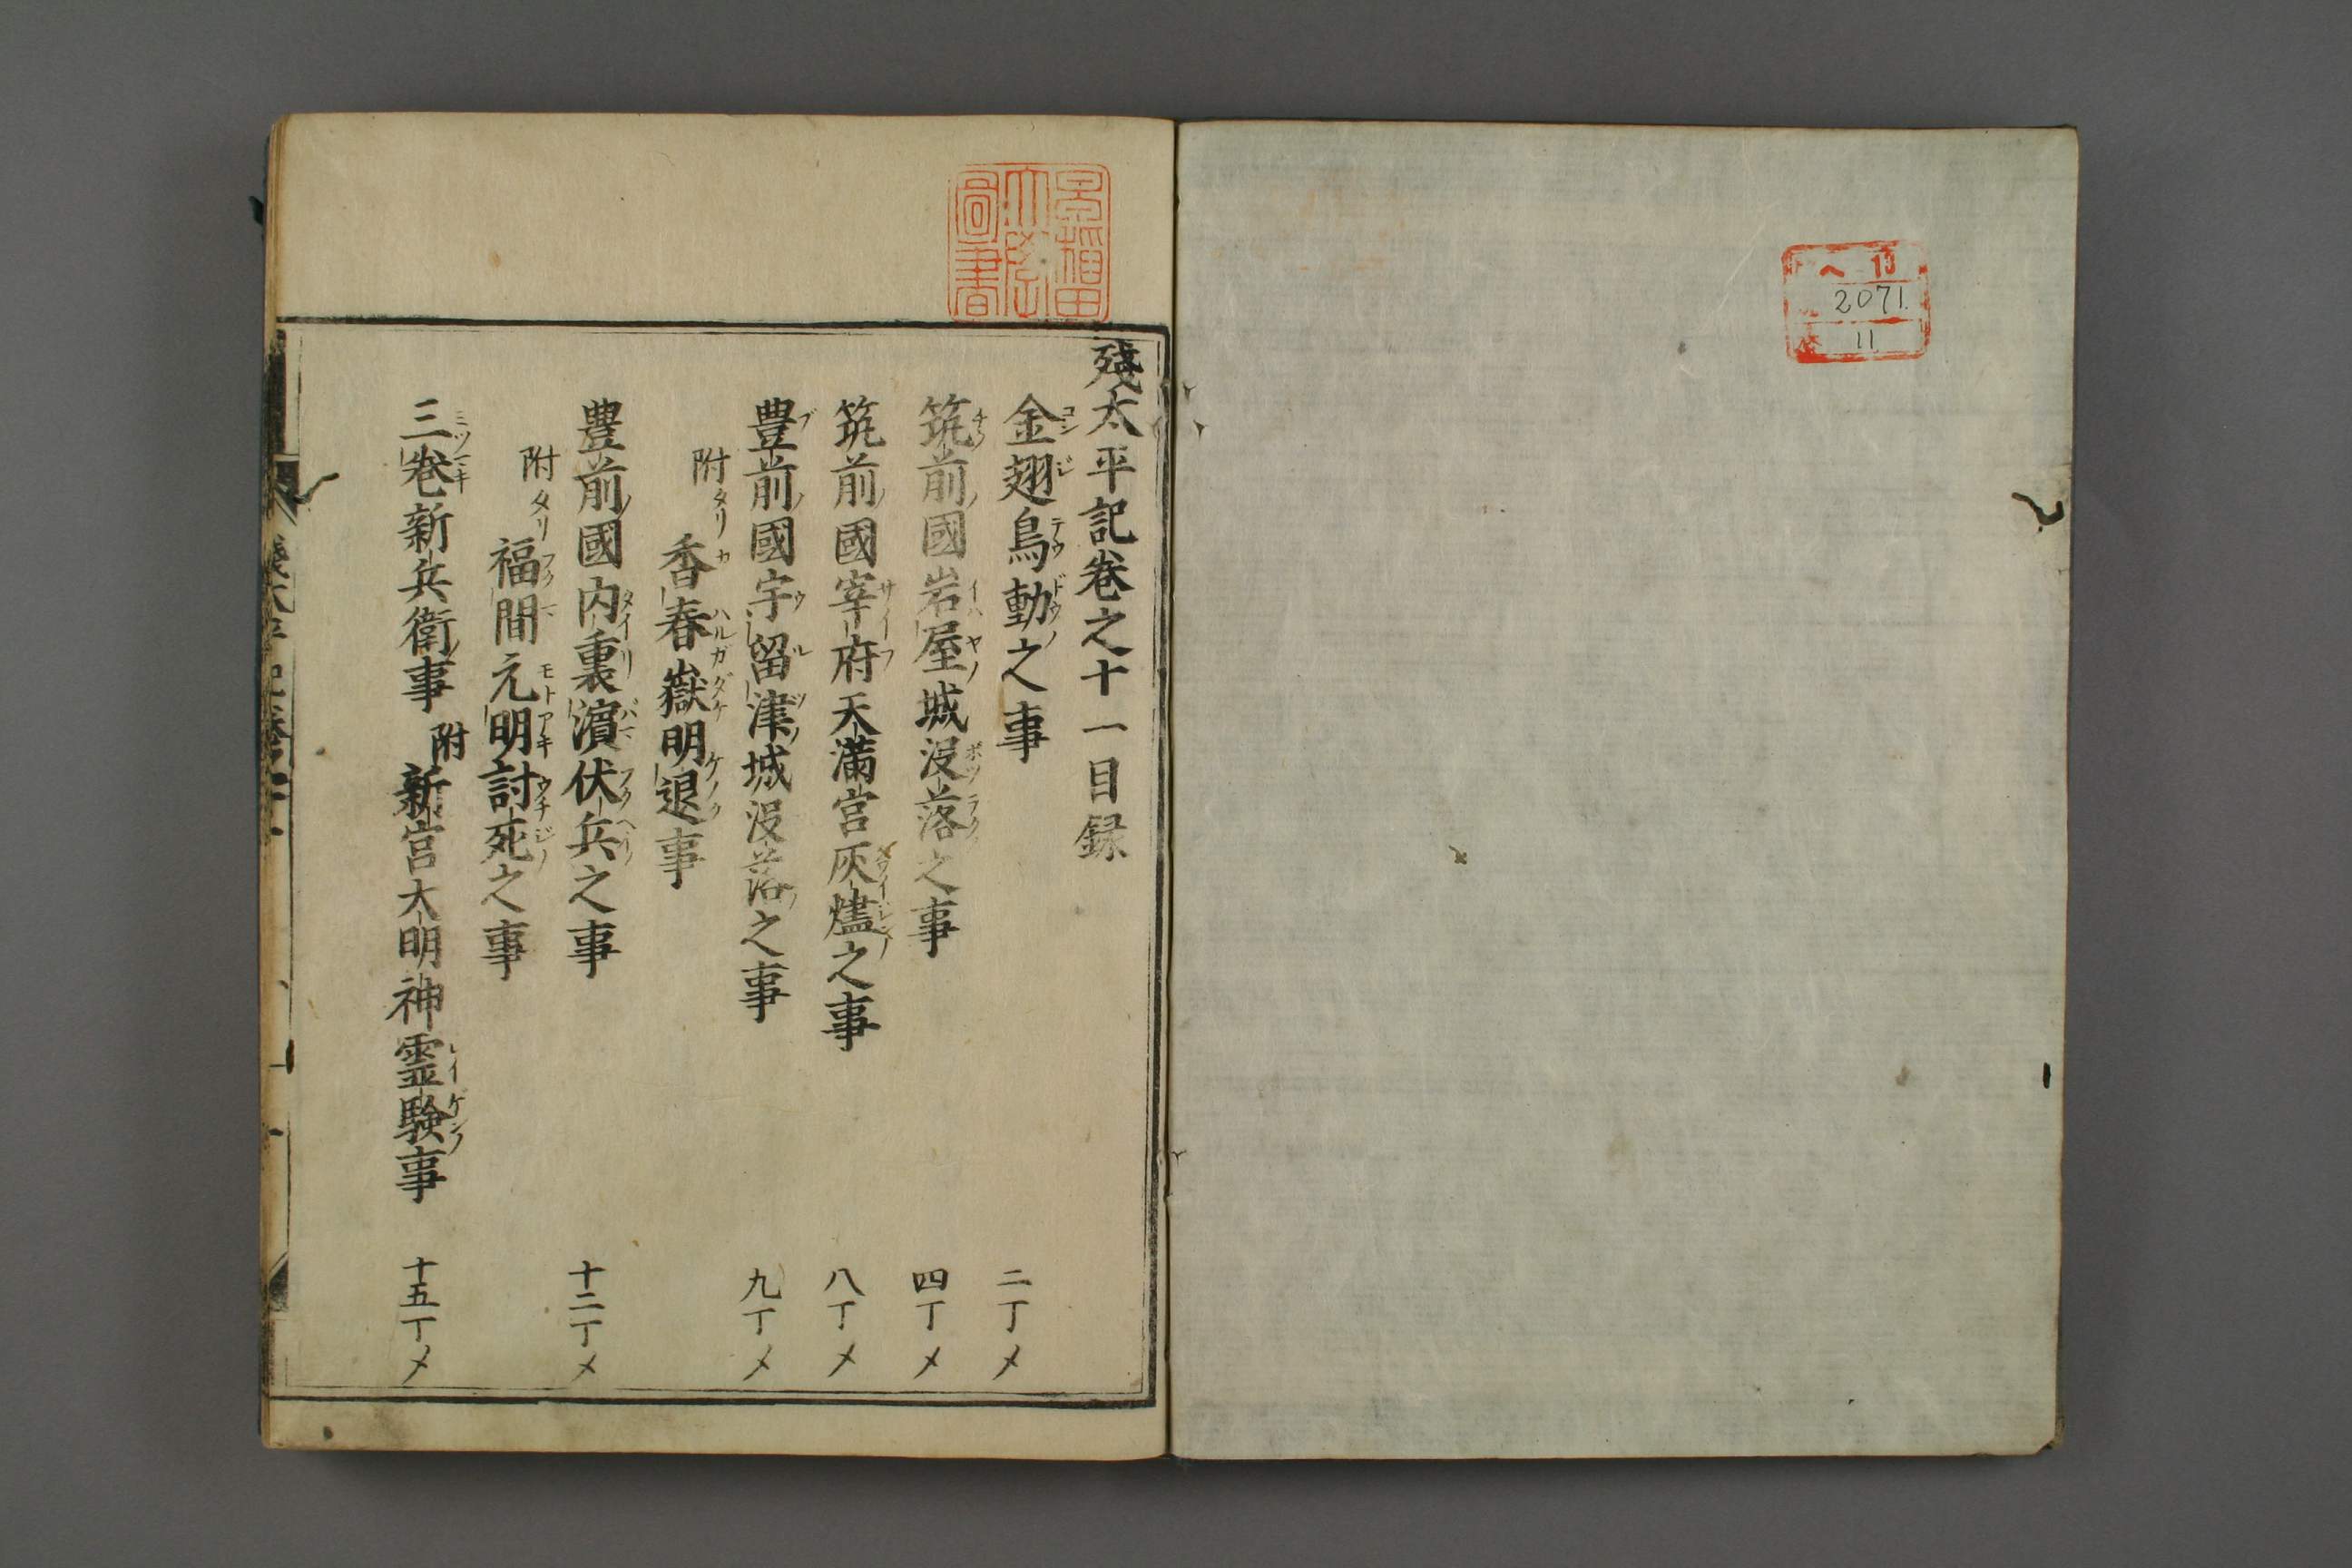 ヘ 13
2071.
11
早稲田大學圖書
殘太平記卷之十一目録
金翅鳥動之事 二丁メ
筑前國岩屋城没落之事 四丁メ
筑前國宰府天満宮灰燼之事 八丁メ
豊前國宇留津城没落之事 九丁メ
附タリ香春嶽明退事
豊前國内裏濵伏兵之事 十二丁メ
附タリ福間元明討死之事
三卷新兵衛事附新宮大明神霊験事 十五丁メ